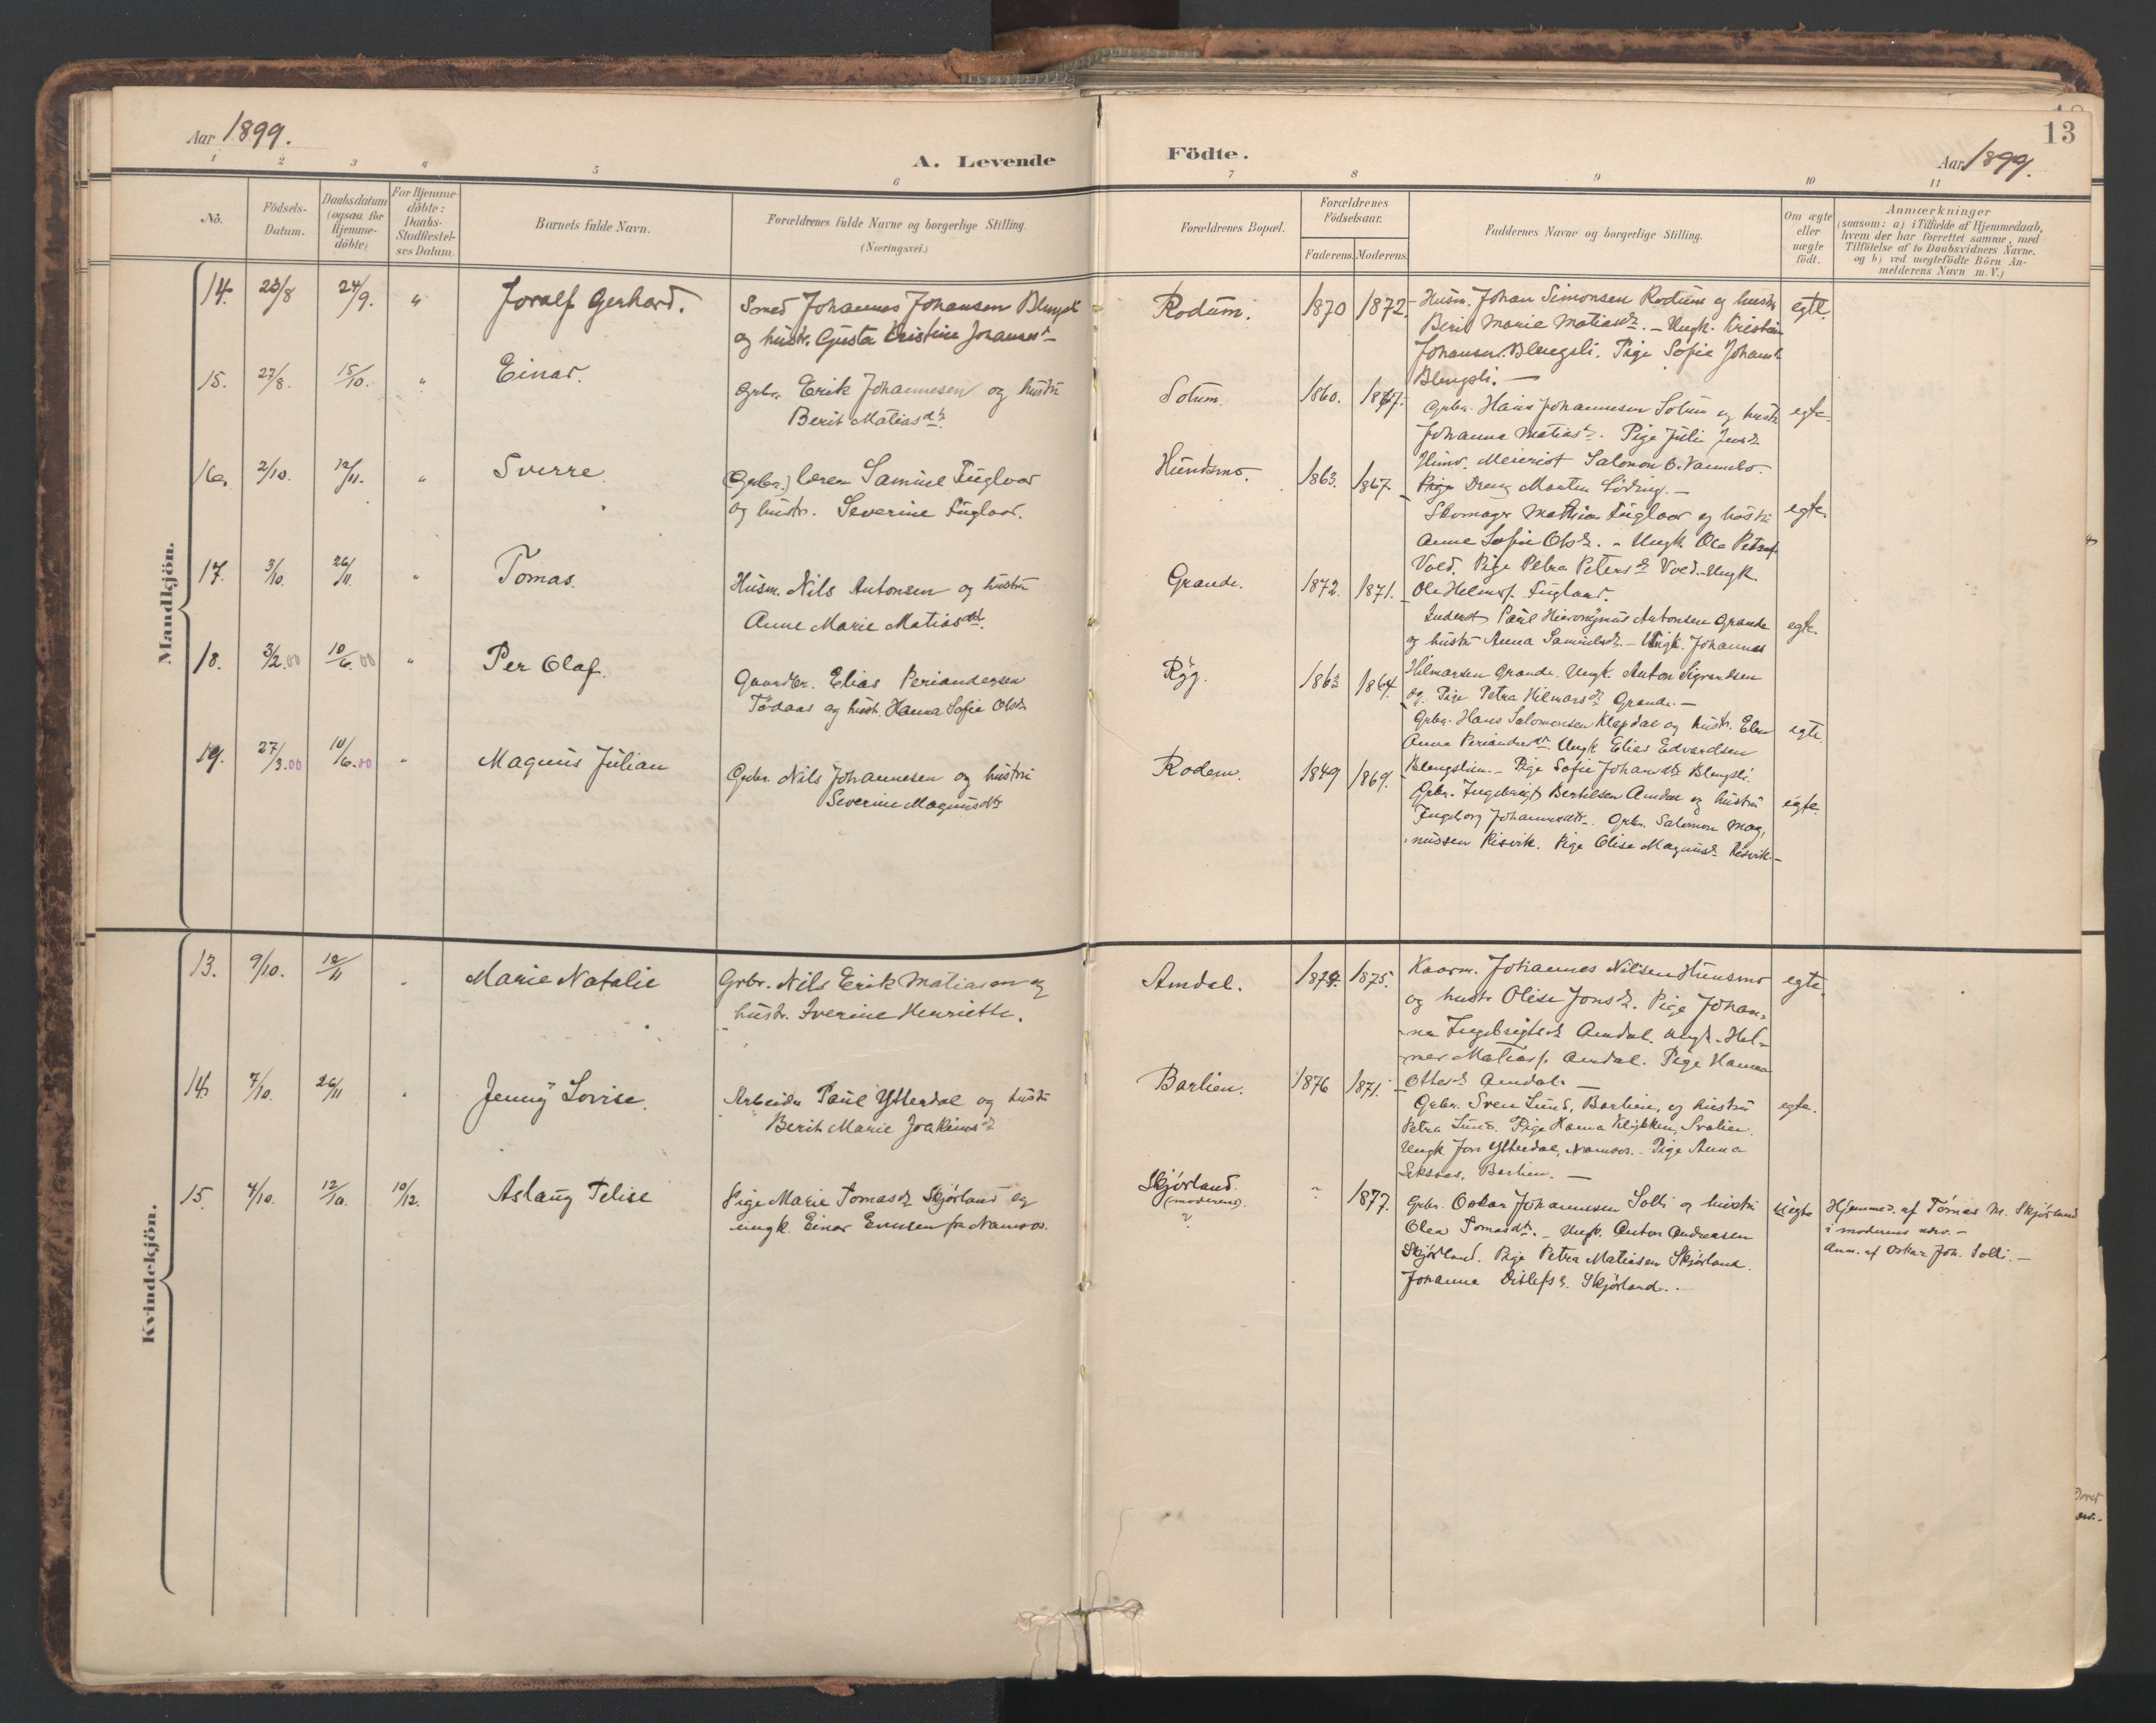 Aar 1899.
A. Levende
Födte.
13
Aar 1899.
1 2 3 4 5 6 7 8 9 10 11
No.
Födsels-
Datum.
Daabsdatum
(ogsaa for
Hjemme-
döbte)
For Hjemme-
döbte:
Daabs-
Stadfæstel-
ses Datum.
Barnets fulde Navn.
Forældrenes fulde Navne og borgerlige Stilling.
(Næringsvei.)
Forældrenes Bopæl.
Forældrenes
Födselsaar.
Faderens. Moderens.
Faddernes Navne og borgerlige Stilling.
Om ægte
eller
uægte
født.
Anmærkninger
(saasom: a) i Tilfælde af Hjemmedaab,
hvem der har forrettet samme, med
Tilföielse af to Daabsvidners Navne.
og b) ved uægtefödte Börn An-
melderens Navn m. V.)
Mandkjön.
14. 23/8 24/9. " Joralf Gerhard.
Smed Johannes Johansen
og hustr. Gusta Kristine
Rodum. 1870 1872.
Husm. Johan Simonsen Rodum og hustr.
Berit Marie Matiasdr. — Ungk. Kristian
Johansen Blengsli. Pige Sofie
Blengsli. —
egte.
15. 27/8. 15/10. " Einar.
Grbr. Erik Johannesen og hustru
Berit Matiasdtr.
Sotum. 1860. 1867.
Grbr. Hans Johannesen Sotum og hustr.
Johanna Matiasdr. Pige Juli
egte
16. 2/10. 12/11. " Sverre
(Grbr.) lærer Samuel Fuglaar
og hustr. Severine Fuglaar.
Hundsmo. 1863. 1867.
Meierist Salomon O. Vannebo. —
Pige Dreng Morten —
Skomager Mathias Fuglaar og hustru
Anne Sofie Olsdr. - Ungk. Ole
Pige Petra Petersdr. Ungk.
Ole Fuglaar.
egte.
17. 3/10. 26/11. " Tomas.
Husm. Nils Antonsen og hustru
Anne Marie Matiasdtr.
Grande. 1872. 1871.
Inderst Paul Hieronymus Antonsen Grande
og hustru Anna Samuelsdr. — Ungk. Johannes
Hilmarsen Grande. Ungk. Anton
og Pige Petra Hilmarsdr. Grande. —
egte.
18. 3/2.00 10/6.00 " Per Olaf.
Elias Periandersen
og hustr. Hanna Sofie Olsdr
Rygg. 1863 1864.
Grbr. Hans Salomonsen Klepdal og hustr. Elen
Anna Periandersdtr. Ungk. Elias Edvardsen
Pige Sofie Johansdtr. Blengsli.
egte.
19. 27/3.00 10/6.00 " Magnus Julian
Grbr. Nils Johannesen og hustru
Severine Magnusdtr
Rodem. 1849 1869.
Grbr. Ingebrigt Bertilsen Amdal og hustru
Ingeborg Johannesdtr. Grbr. Salomon Mag-
nussen Risvik. Pige Olise Magnusdr. Risvik. —
egte.
Kvindekjön.
13. 9/10. 12/11 Marie Natalie
Grbr. Nils Erik Matiasen og
hustr. Iverine Henriette.
Amdal. 1874. 1875.
Johannes Nilsen Hunsmo
og hustr. Olise Jonsdr. Pige Johan-
na Ingebrigtsdr. Amdal. Ungk. Hel-
mer Matiass. Amdal. Pige Hanna
Ottesdr. Amdal. —
egte.
14. 7/10. 26/11 Jenny Lovise.
Arbeider Paul Ytterdal og hustru
Berit Marie Joakimsdr
Barlien. 1876 1871.
Grbr. Sven Lund, Barlien, og hustru
Petra Lund. Pige Hanna
Ungk. Jon Ytterdal, Namsos. - Pige Anna
Barlien. —
egte.
15. 4/10. 12/10. 10/12. Aslaug Telise
Pige Marie Tomasdr. Skjørland og
ungk. Einar fra Namsos.
Skjørland.
(moderens).
?
? 1877.
Grbr. Oskar Johannesen Solli og hustru
Olea Tomasdtr. — Ungk. Anton Andreasen
Skjørland. Pige Petra Matiasen Skjørland.
Johanna Skjørland. -
uegte
Hjemmed. af Tomas M. Skjørland
i moderens nærv. —
Anm. af Oskar Joh. Solli. —